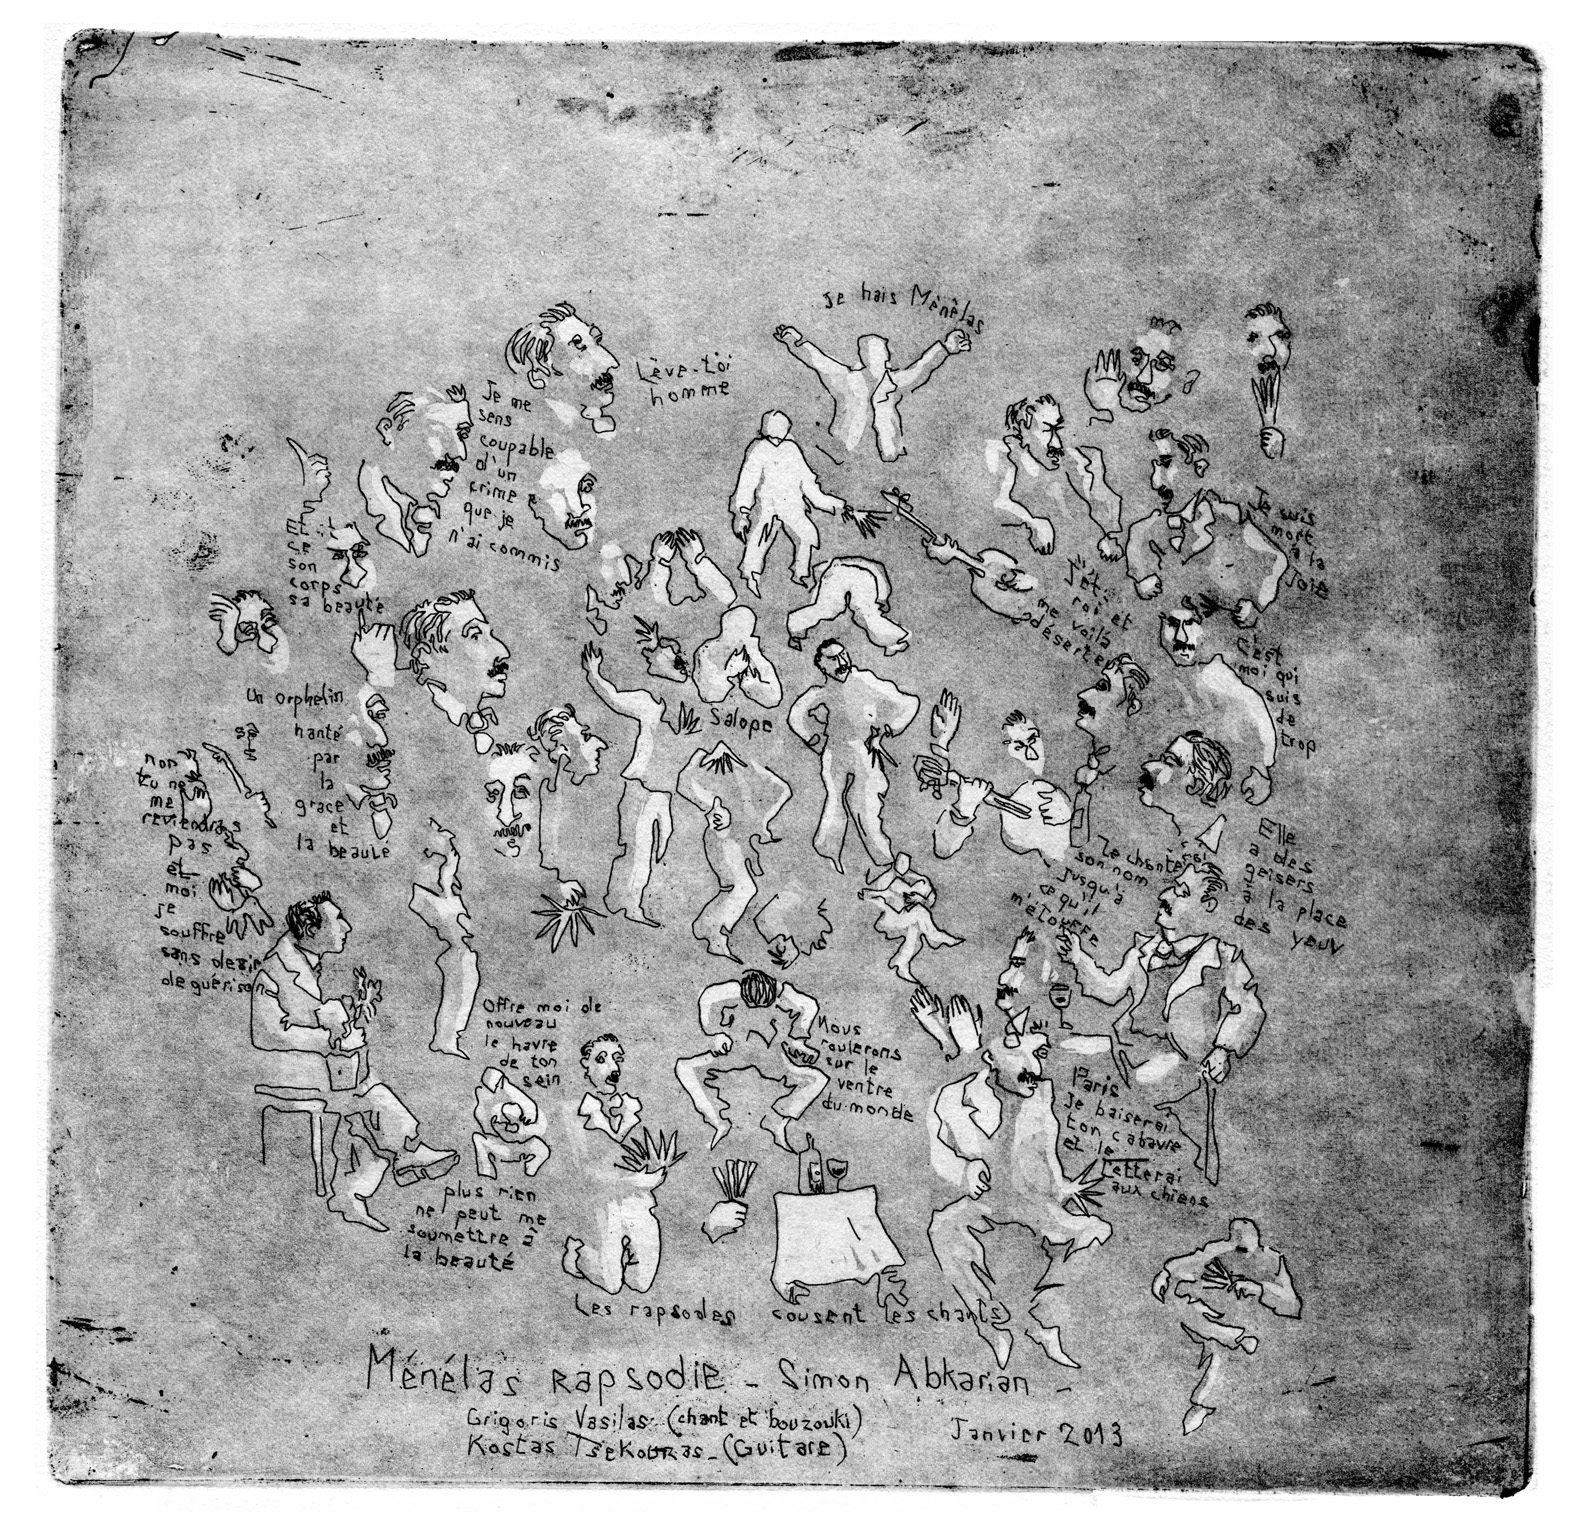 Je hais Ménélas
Lève-toi
homme
Je me
sens
coupable
d'un
crime
que je
n'ai commis
Et
ce
son
corps
sa beauté
Je suis
mort
à la
Joie
roi et
me voilà
déserteur
c'est
moi qui
suis
de
trop
un orphelin
hanté
par
la
grace
et
la beauté
non
tu ne
me
reviendras
pas
et
moi
je
souffre
sans desir
de guérison
Salope
Elle
a des
geisers
à la place
des yeux
Je chanterai
son nom
jusqu'à
ce qu'il
m'étouffe
Offre moi de
nouveau
le havre
de ton
sein
Nous
roulerons
sur le
ventre
du monde
Paris
Je baiserai
ton cabavre
et le
jetterai
aux chiens
plus rien
ne peut me
soumettre à
la beauté
Les rapsodes cousent les chants
Ménélas RapsodIE - Simon Abkarian -
Grigoris Vasilas (chant et bouzouki)
Kostas Tsekouras - (Guitare)
Janvier 2013